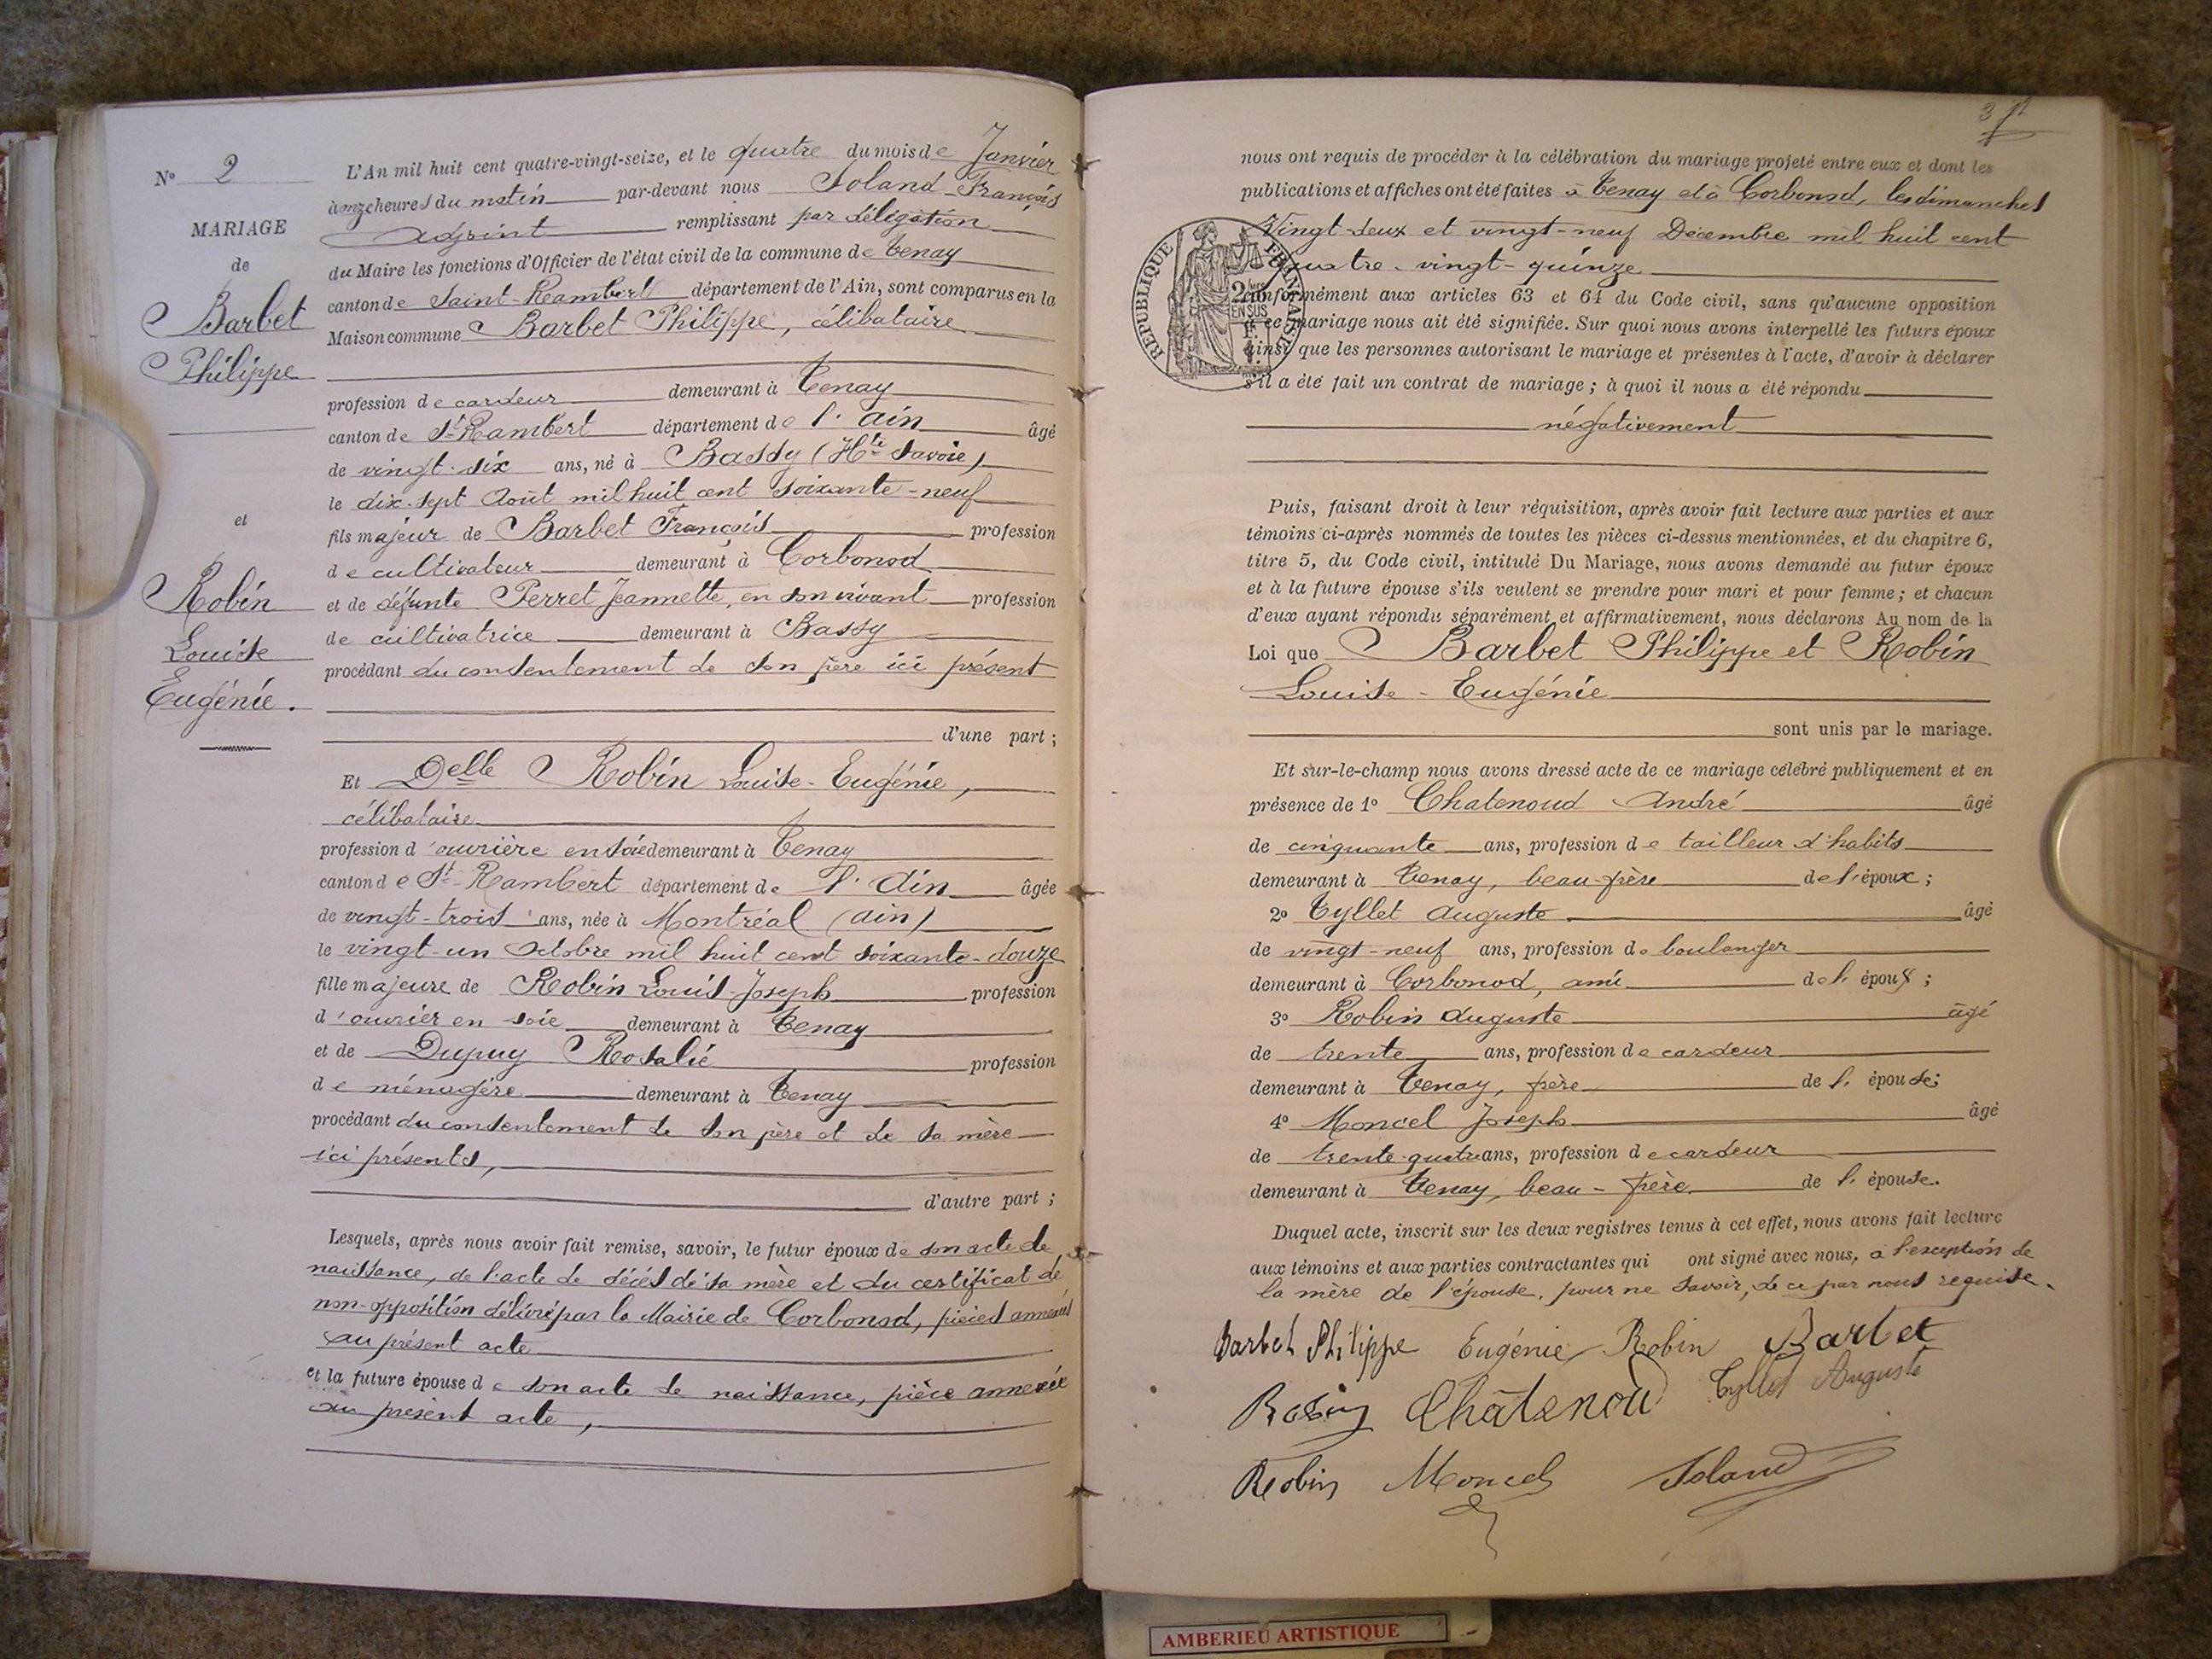 N° 2
MARIAGE
de
Barbet
Philippe
et
Robin
Louise
Eugénie.
L'An mil huit cent quatre-vingt-seize, et le quatre du mois de Janvier
à onze heures du matin par-devant nous Soland François
adjoint remplissant par délégation
du Maire les fonctions d'Officier de l'état civil de la commune de Tenay
canton de Saint-Rambert département de l'Ain, sont comparus en la
Maison commune Barbet Philippe, célibataire
profession de cardeur demeurant à Tenay
canton de St-Rambert département de l'ain âgé
de vingt-six ans, né à Bassy (Hte Savoie)
le dix-sept Août mil huit cent soixante-neuf
fils majeur de Barbet François profession
de cultivateur demeurant à Corbonod
et de défunte Perret Jeannette, en son vivant profession
de cultivatrice demeurant à Bassy
procédant du consentement de son père ici présent
d'une part ;
Et Delle Robin Louise-Eugénie,
célibataire
profession d'ouvrière en soie demeurant à Tenay
canton de St-Rambert département de l'Ain âgée
de vingt-trois ans, née à Montréal (ain)
le vingt-un octobre mil huit cent soixante-douze
fille majeure de Robin Louis-Joseph profession
d'ouvrier en soie demeurant à Tenay
et de Dupuy Rosalie profession
de ménagère demeurant à Tenay
procédant du consentement de son père et de sa mère
ici présents,
d'autre part ;
Lesquels, après nous avoir fait remise, savoir, le futur époux de son acte de
naissance, de l'acte de décès de sa mère et du certificat de
non-opposition délivré par la Mairie de Corbonod, pièces annexées
au présent acte
et la future épouse de son acte de naissance, pièce annexée
au présent acte,
nous ont requis de procéder à la célébration du mariage projeté entre eux et dont les
publications et affiches ont été faites à Tenay et à Corbonod, les dimanches
Vingt-deux et vingt-neuf Décembre mil huit cent
quatre-vingt-quinze
REPUBLIQUE FRANÇAISE
EN SUS
conformément aux articles 63 et 64 du Code civil, sans qu'aucune opposition
à ce mariage nous ait été signifiée. Sur quoi nous avons interpellé les futurs époux
ainsi que les personnes autorisant le mariage et présentes à l'acte, d'avoir à déclarer
s'il a été fait un contrat de mariage ; à quoi il nous a été répondu
négativement
Puis, faisant droit à leur réquisition, après avoir fait lecture aux parties et aux
témoins ci-après nommés de toutes les pièces ci-dessus mentionnées, et du chapitre 6,
titre 5, du Code civil, intitulé Du Mariage, nous avons demandé au futur époux
et à la future épouse s'ils veulent se prendre pour mari et pour femme ; et chacun
d'eux ayant répondu séparément et affirmativement, nous déclarons Au nom de la
Loi que Barbet Philippe et Robin
Louise-Eugénie
sont unis par le mariage.
Et sur-le-champ nous avons dressé acte de ce mariage célébré publiquement et en
présence de 1° Chatenoud André âgé
de cinquante ans, profession de tailleur d'habits
demeurant à Tenay, beau-frère de l'époux ;
2° Tyllet Auguste âgé
de vingt-neuf ans, profession de boulanger
demeurant à Corbonod, ami de l'époux ;
3° Robin Auguste âgé
de trente ans, profession de cardeur
demeurant à Tenay, frère de l'épouse;
4° Moncel Joseph âgé
de trente-quatre ans, profession de cardeur
demeurant à Tenay, beau-frère de l'épouse.
Duquel acte, inscrit sur les deux registres tenus à cet effet, nous avons fait lecture
aux témoins et aux parties contractantes qui ont signé avec nous, à l'exception de
la mère de l'épouse, pour ne savoir, de ce par nous requise.
Barbet Philippe Eugénie Robin Barbet
Robin Châtenoud Tyllet Auguste
Robin Moncel Soland
AMBERIEU ARTISTIQUE